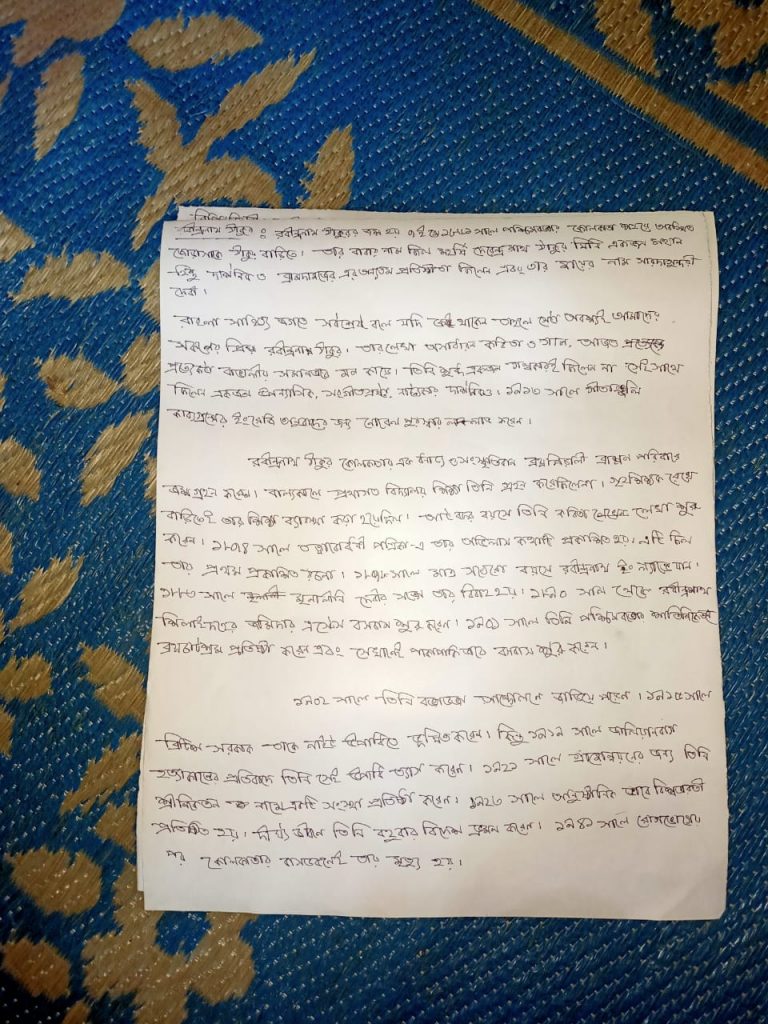 রবীন্দ্রনাথ ঠাকুর : রবীন্দ্রনাথ ঠাকুরের জন্ম হয় ৭ই মে ১৮৬১ সালে পশ্চিমবঙ্গের কোলকাতা শহরে অবস্থিত
জোড়াসাঁকো ঠাকুর বাড়িতে। তার বাবার নাম ছিল মহর্ষি দেবেন্দ্রনাথ ঠাকুর যিনি একজন মহান
হিন্দু দার্শনিক ও ব্রাহ্মসমাজের এর অন্যতম প্রতিষ্ঠাতা ছিলেন এবং তার মায়ের নাম সারদাসুন্দরী
দেবী।
বাংলা সাহিত্য জগতে সর্বশ্রেষ্ঠ বলে যদি কেউ থাকেন তাহলে সেটা অবশ্যই আমাদের
সকলের প্রিয় রবীন্দ্রনাথ ঠাকুর। তার লেখা অসাধারন কবিতা ও গান, আজও
প্রত্যেকটা বাঙালীর মন কাড়ে। তিনি শুধু একজন ছিলেন না সেই সাথে
ছিলেন একজন ঔপন্যাসিক, সংগীতস্রষ্টা, নাট্যকার দার্শনিকও। ১৯১৩ সালে গীতাঞ্জলি
কাব্যগ্রন্থের ইংরেজি অনুবাদের জন্য নোবেল পুরস্কার লাভ করেন।
রবীন্দ্রনাথ ঠাকুর কোলকাতার এক ধনাঢ্য ও সংস্কৃতিবান ব্রাহ্ম পরিবারে
জন্মগ্রহন করেন। বাল্যকালে প্রথাগত বিদ্যালয় শিক্ষা তিনি গ্রহন করেননি। গৃহশিক্ষক রেখে
বাড়িতেই তার শিক্ষার ব্যবস্থা করা হয়েছিল। আট বছর বয়সে তিনি কবিতা লেখা শুরু
করেন। ১৮৭৪ সালে তত্ত্ববোধিনী পত্রিকা-এ তার অভিলাষ কবিতাটি প্রকাশিত হয়। এটি ছিল
তার প্রথম প্রকাশিত রচনা। ১৮৭৮ সালে মাত্র সতেরো বয়সে রবীন্দ্রনাথ ইংল্যান্ডে যান।
১৮৮৩ সালে মৃণালিনী দেবীর সঙ্গে তার বিবাহ হয়। ১৮৯০ সাল থেকে রবীন্দ্রনাথ
শিলাইদহের জমিদারি এস্টেটে বসবাস শুরু করেন। ১৯০১ সালে তিনি পশ্চিমবঙ্গের শান্তিনিকেতনে
ব্রহ্মচর্যাশ্রম প্রতিষ্ঠা করেন এবং সেখানেই পাকাপাকিভাবে বসবাস শুরু করেন।
১৯০২ সালে তিনি বঙ্গভঙ্গ আন্দোলনে জড়িয়ে পড়েন। ১৯১৫ সালে
ব্রিটিশ সরকার তাকে নাইট উপাধিতে ভূষিত করেন। কিন্তু ১৯১৯ সালে জালিয়ানবাগ
হত্যাকান্ডের প্রতিবাদে তিনি সেই উপাধি ত্যাগ করেন। ১৯২১ সালে গ্রামোন্নয়নের জন্য তিনি
শ্রীনিকেতন নামে একটি সংস্থা প্রতিষ্ঠা করেন। ১৯২৩ সালে আনুষ্ঠানিক ভাবে বিশ্বভারতী
প্রতিষ্ঠিত হয়। দীর্ঘ জীবনে তিনি বহুবার বিদেশ ভ্রমন করেন। ১৯৪১ সালে রোগভোগের
পর কোলকাতার বাসভবনেই তার মৃত্যু হয়।